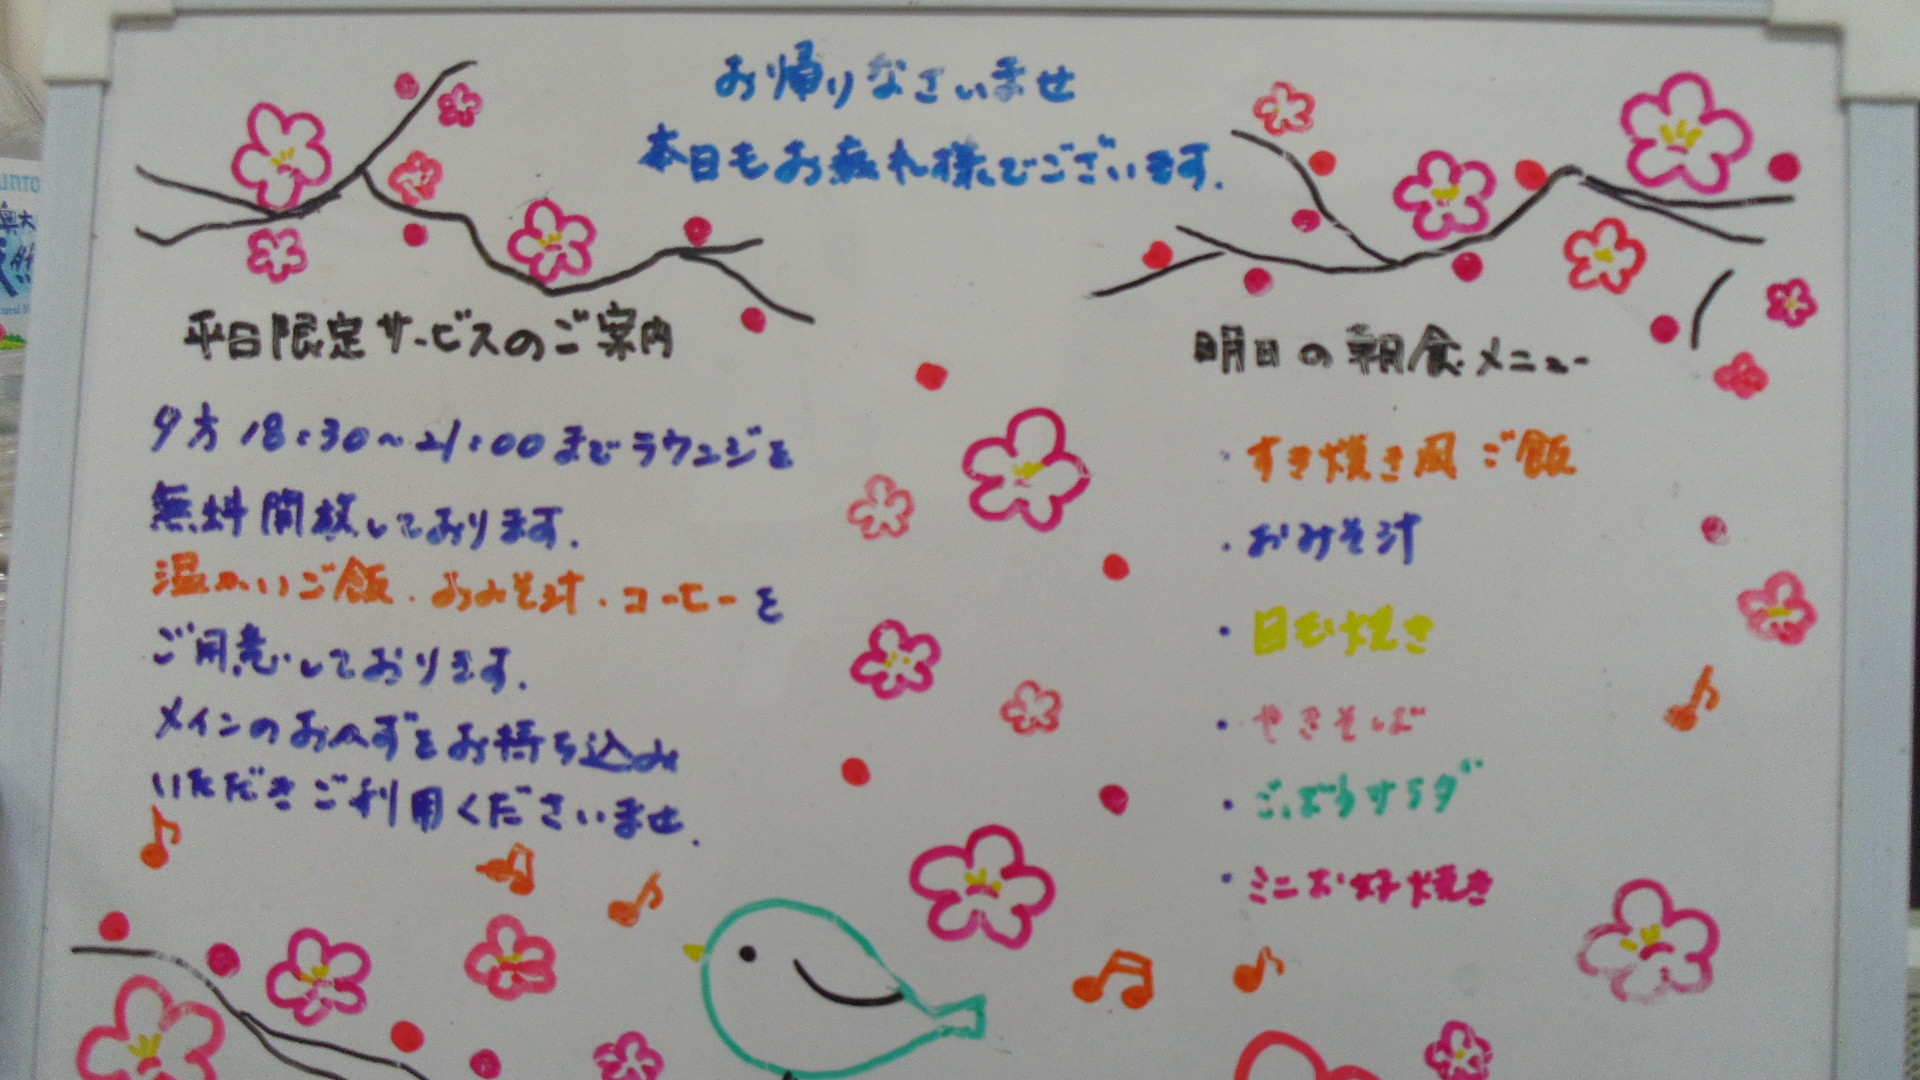 お帰りなさいませ
本日もお疲れ様でございます.
平日限定サービスのご案内
夕方18:30〜21:00までラウンジを
無料開放しております.
温かいご飯.おみそ汁.コーヒーを
ご用意しております.
メインのおかずをお持ち込み
いただきご利用くださいませ.
明日の朝食メニュー
・すき焼き風ご飯
・おみそ汁
・目玉焼き
・やきそば
・ごぼうサラダ
・ミニお好焼き